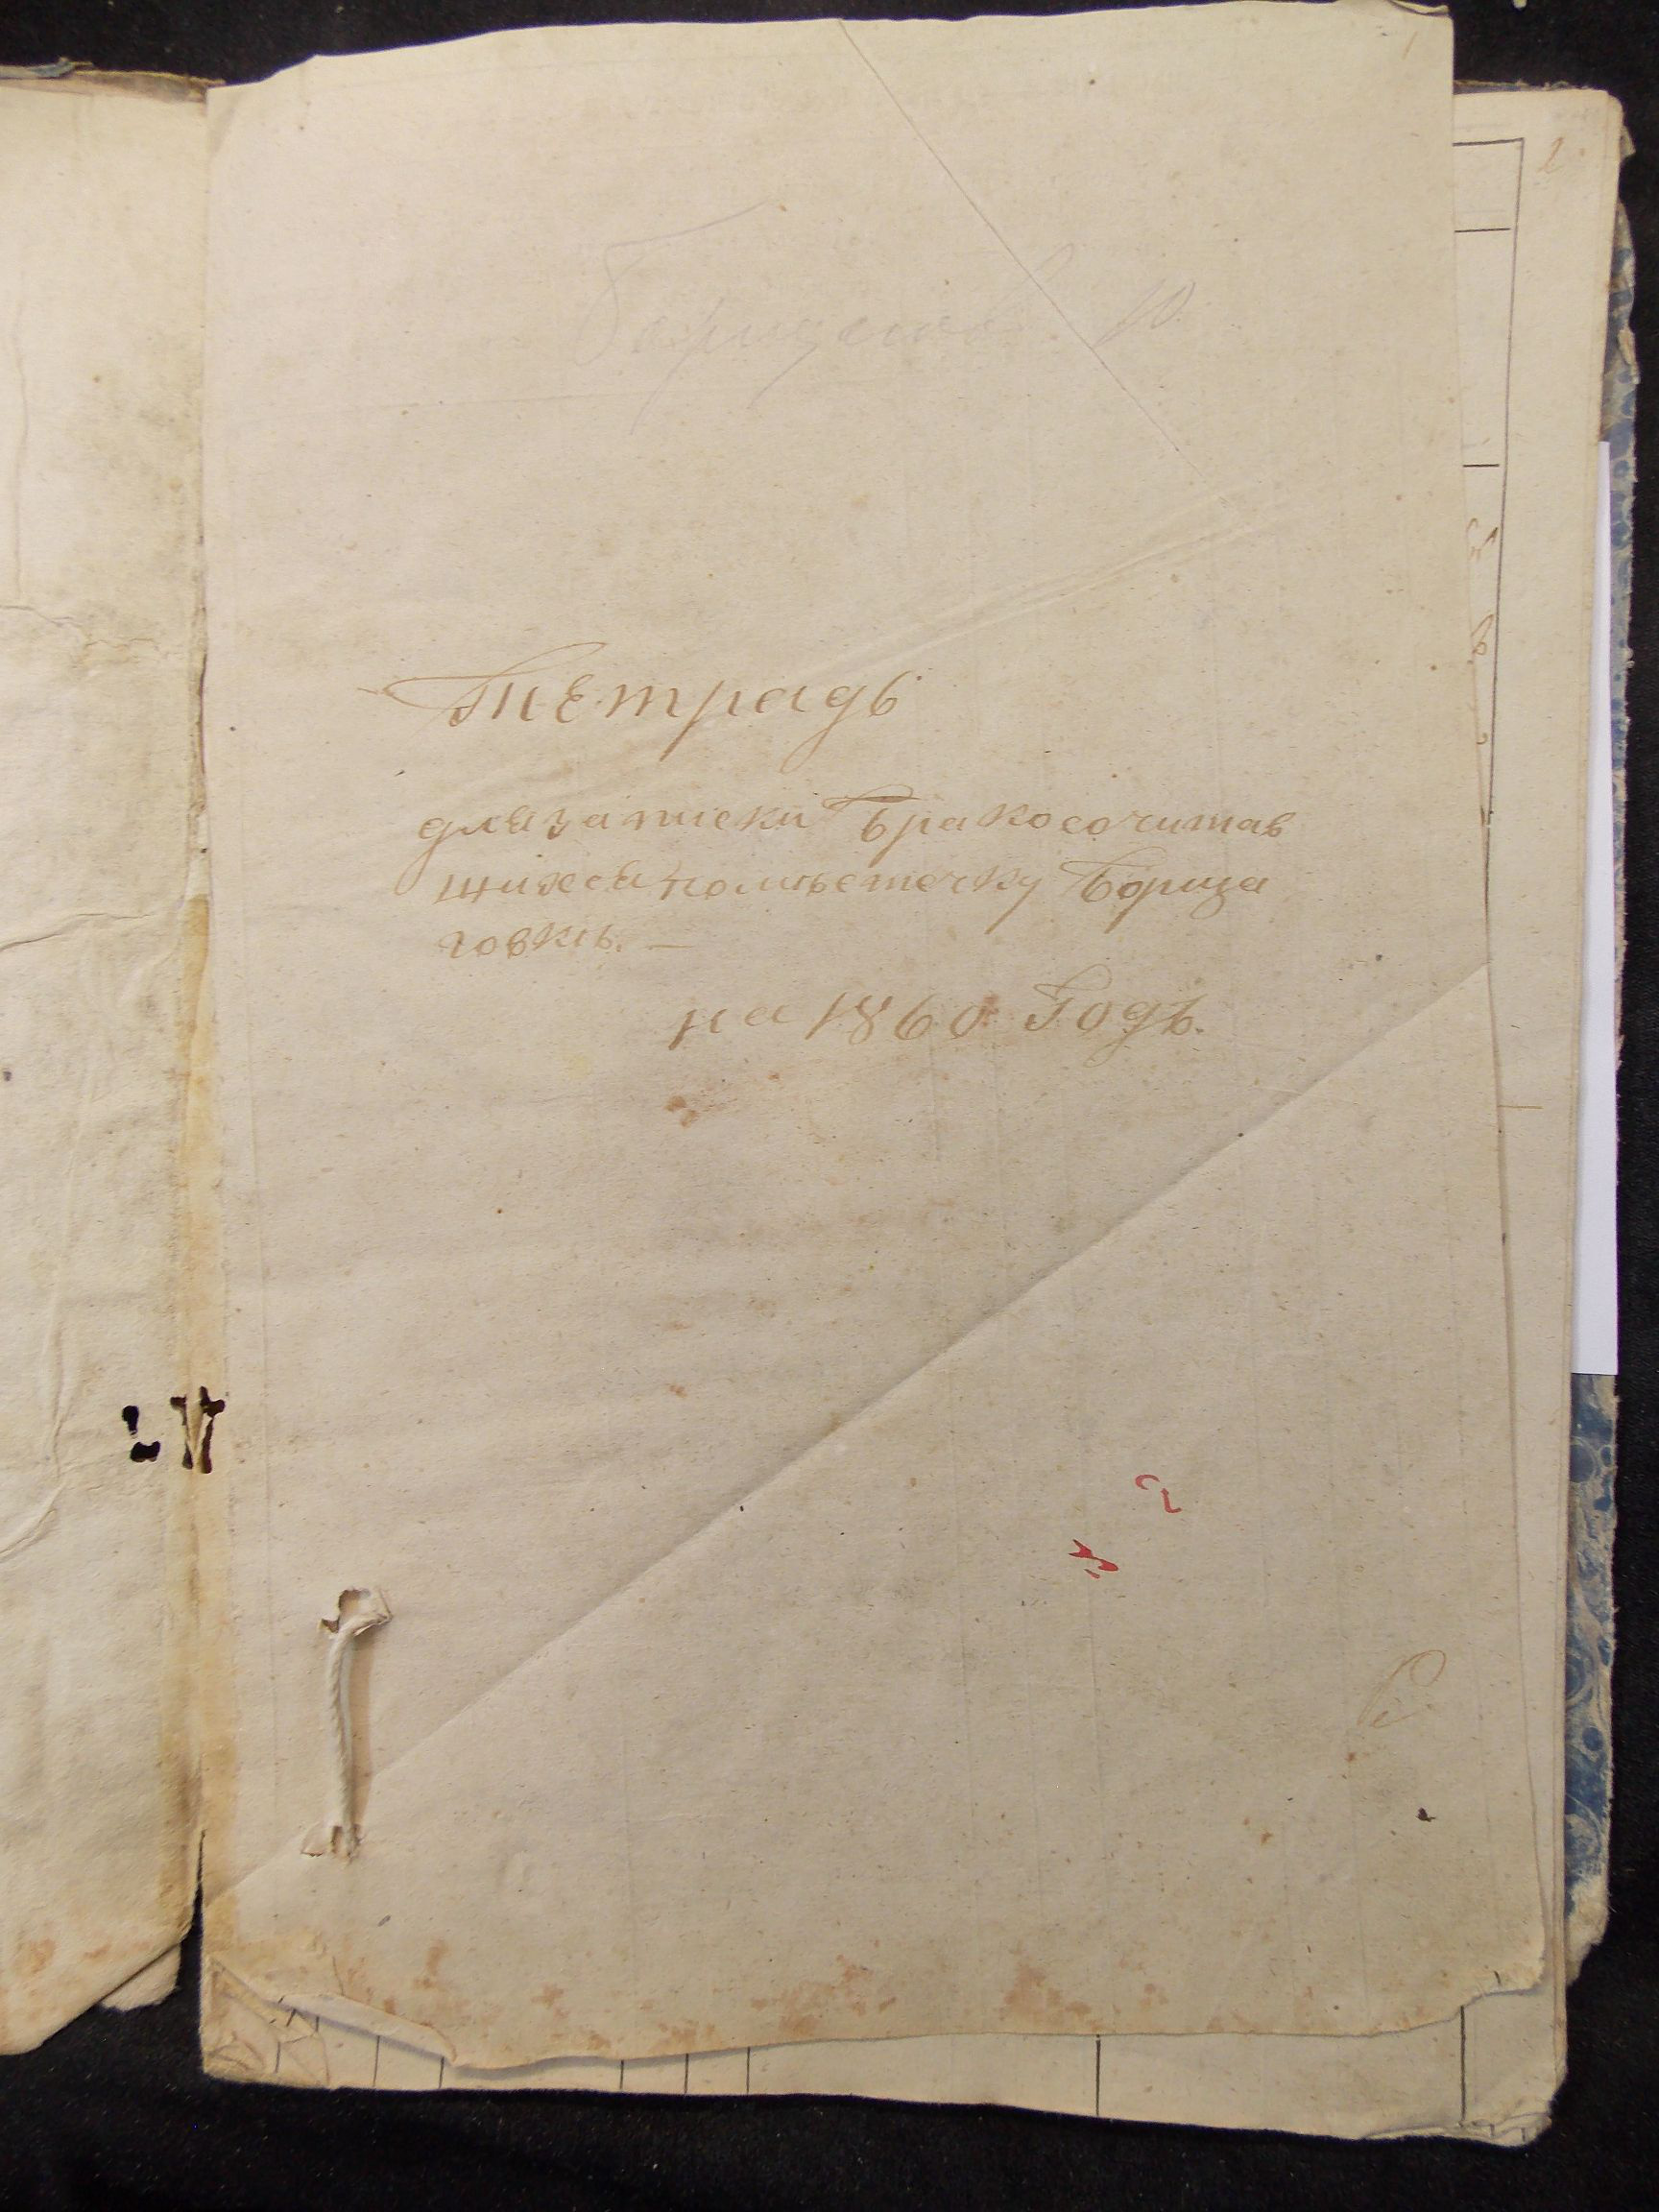 1
2
Тетрадь
длязаписки Бракосочитав
шихся поместечку Борща
говкѣ. —
на 1860 Годъ.